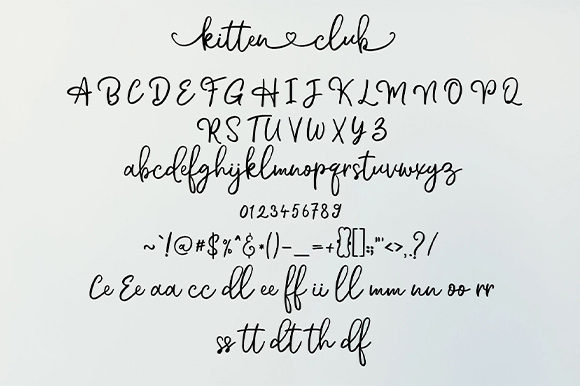 kitten club
A B C D E F G H I J K L M N O P Q
R S T U V W X Y Z
abcdefghijklmnopqrstuvwxyz
0123456789
~`!@#$%^&*()-_=+{}[]:;"'<>,.?/
Ce Ee aa cc dl ee ff ii ll mm nn oo rr
ss tt dt th df